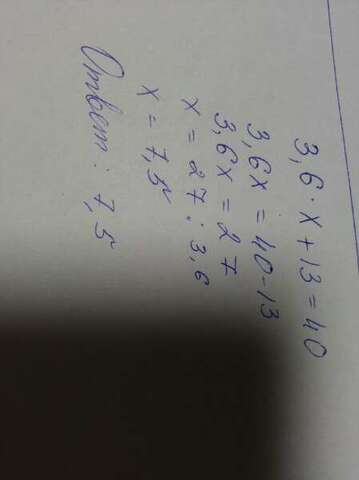 3,6 · x + 13 = 40
3,6x = 40-13
3,6x = 27
x = 27 : 3,6
x = 7,5
Ответ: 7,5